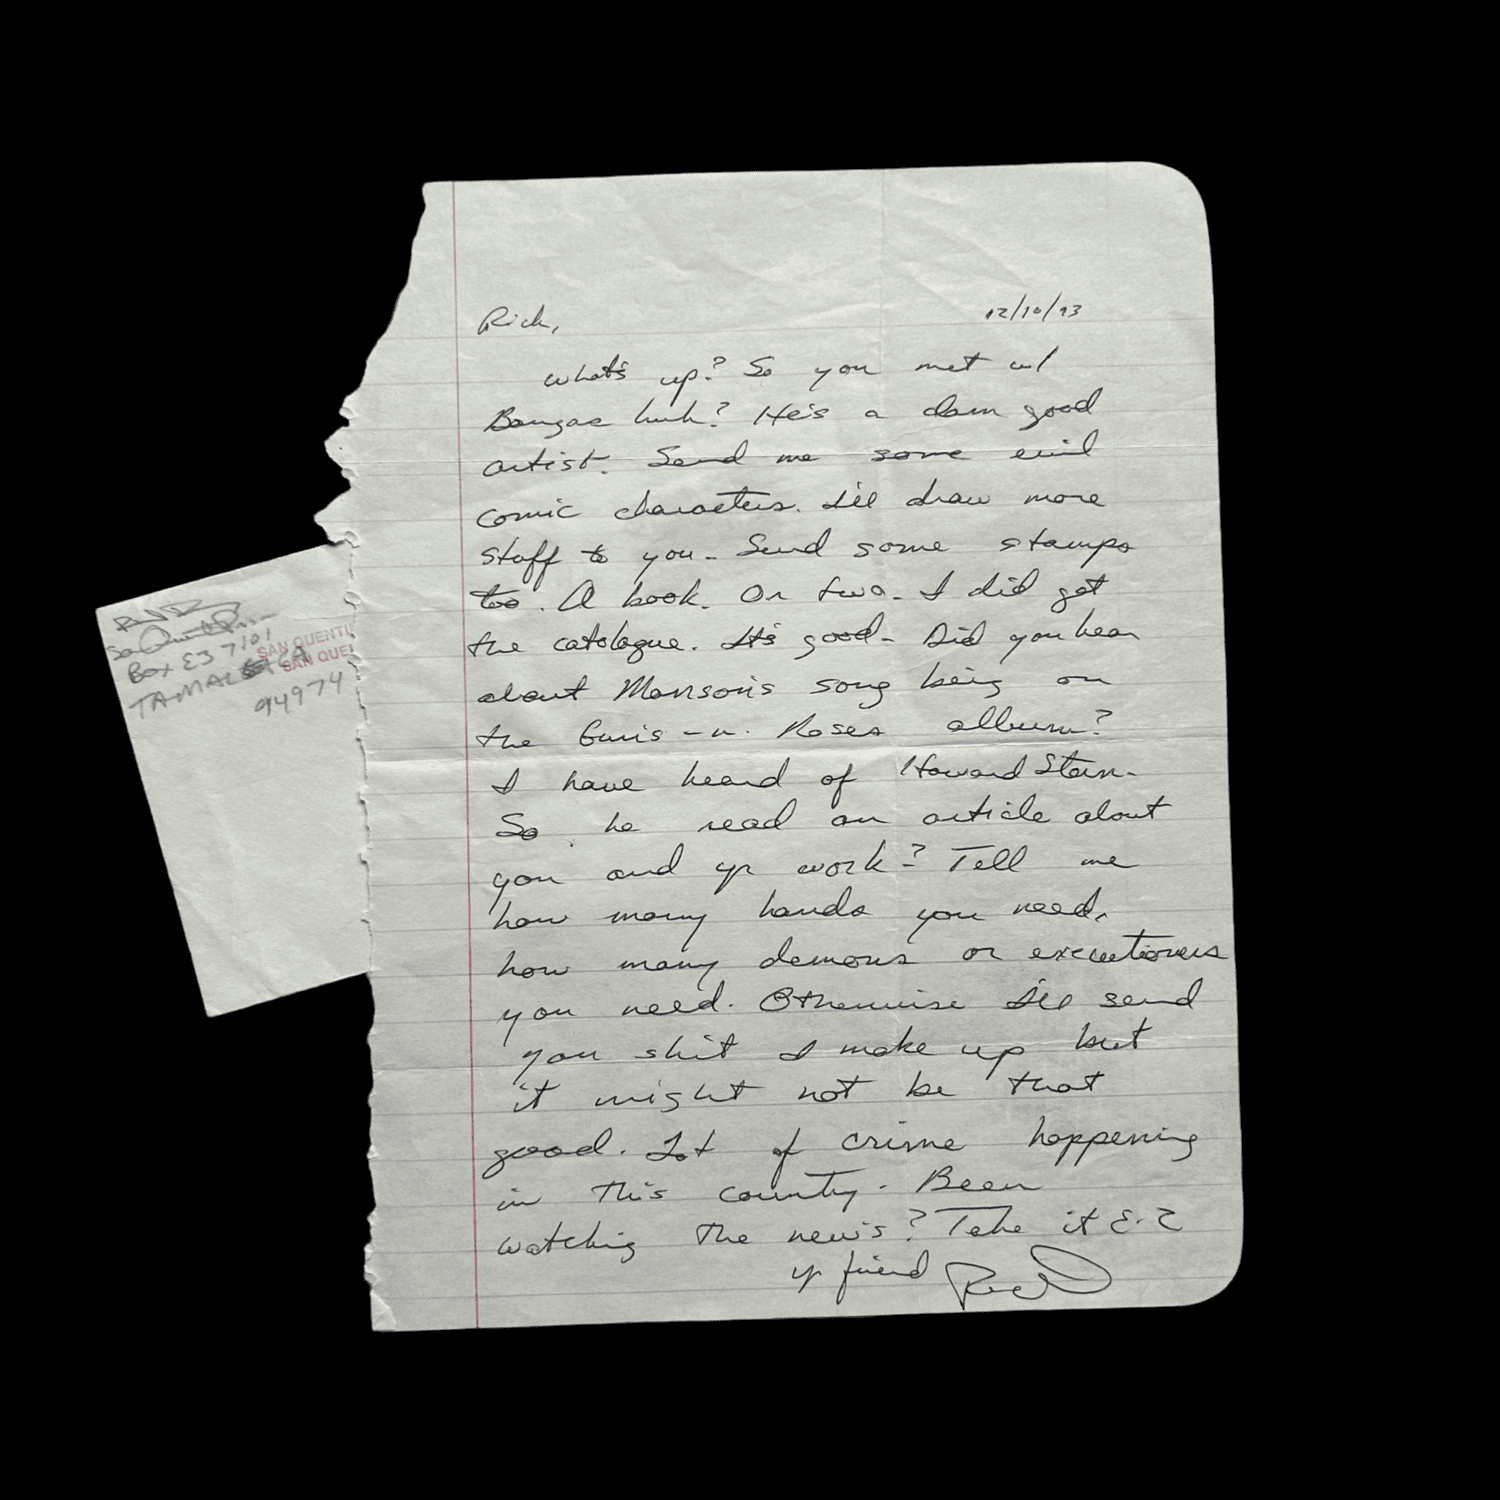 Rich,
12/10/93
what's up? So you met w/
Bougas huh? He's a dam good
artist. Send me some evil
comic characters. I'll draw more
stuff to you. Send some stamps
too. A book. Or two. I did get
the catologue. It's good. Did you hear
about Manson's song being on
the Guns-n. Roses album?
I have heard of Howard Stern.
So he read an article about
you and yr work? Tell me
how many hands you need,
how many demons or executioners
you need. Otherwise I'll send
you shit I make up but
it might not be that
good. Lot of crime happening
in this country. Been
watching the news? Take it E-Z
yr friend Rich
San Quentin Prison
Box E37101
TAMAL CA
94974
SAN QUENTI
SAN QUE